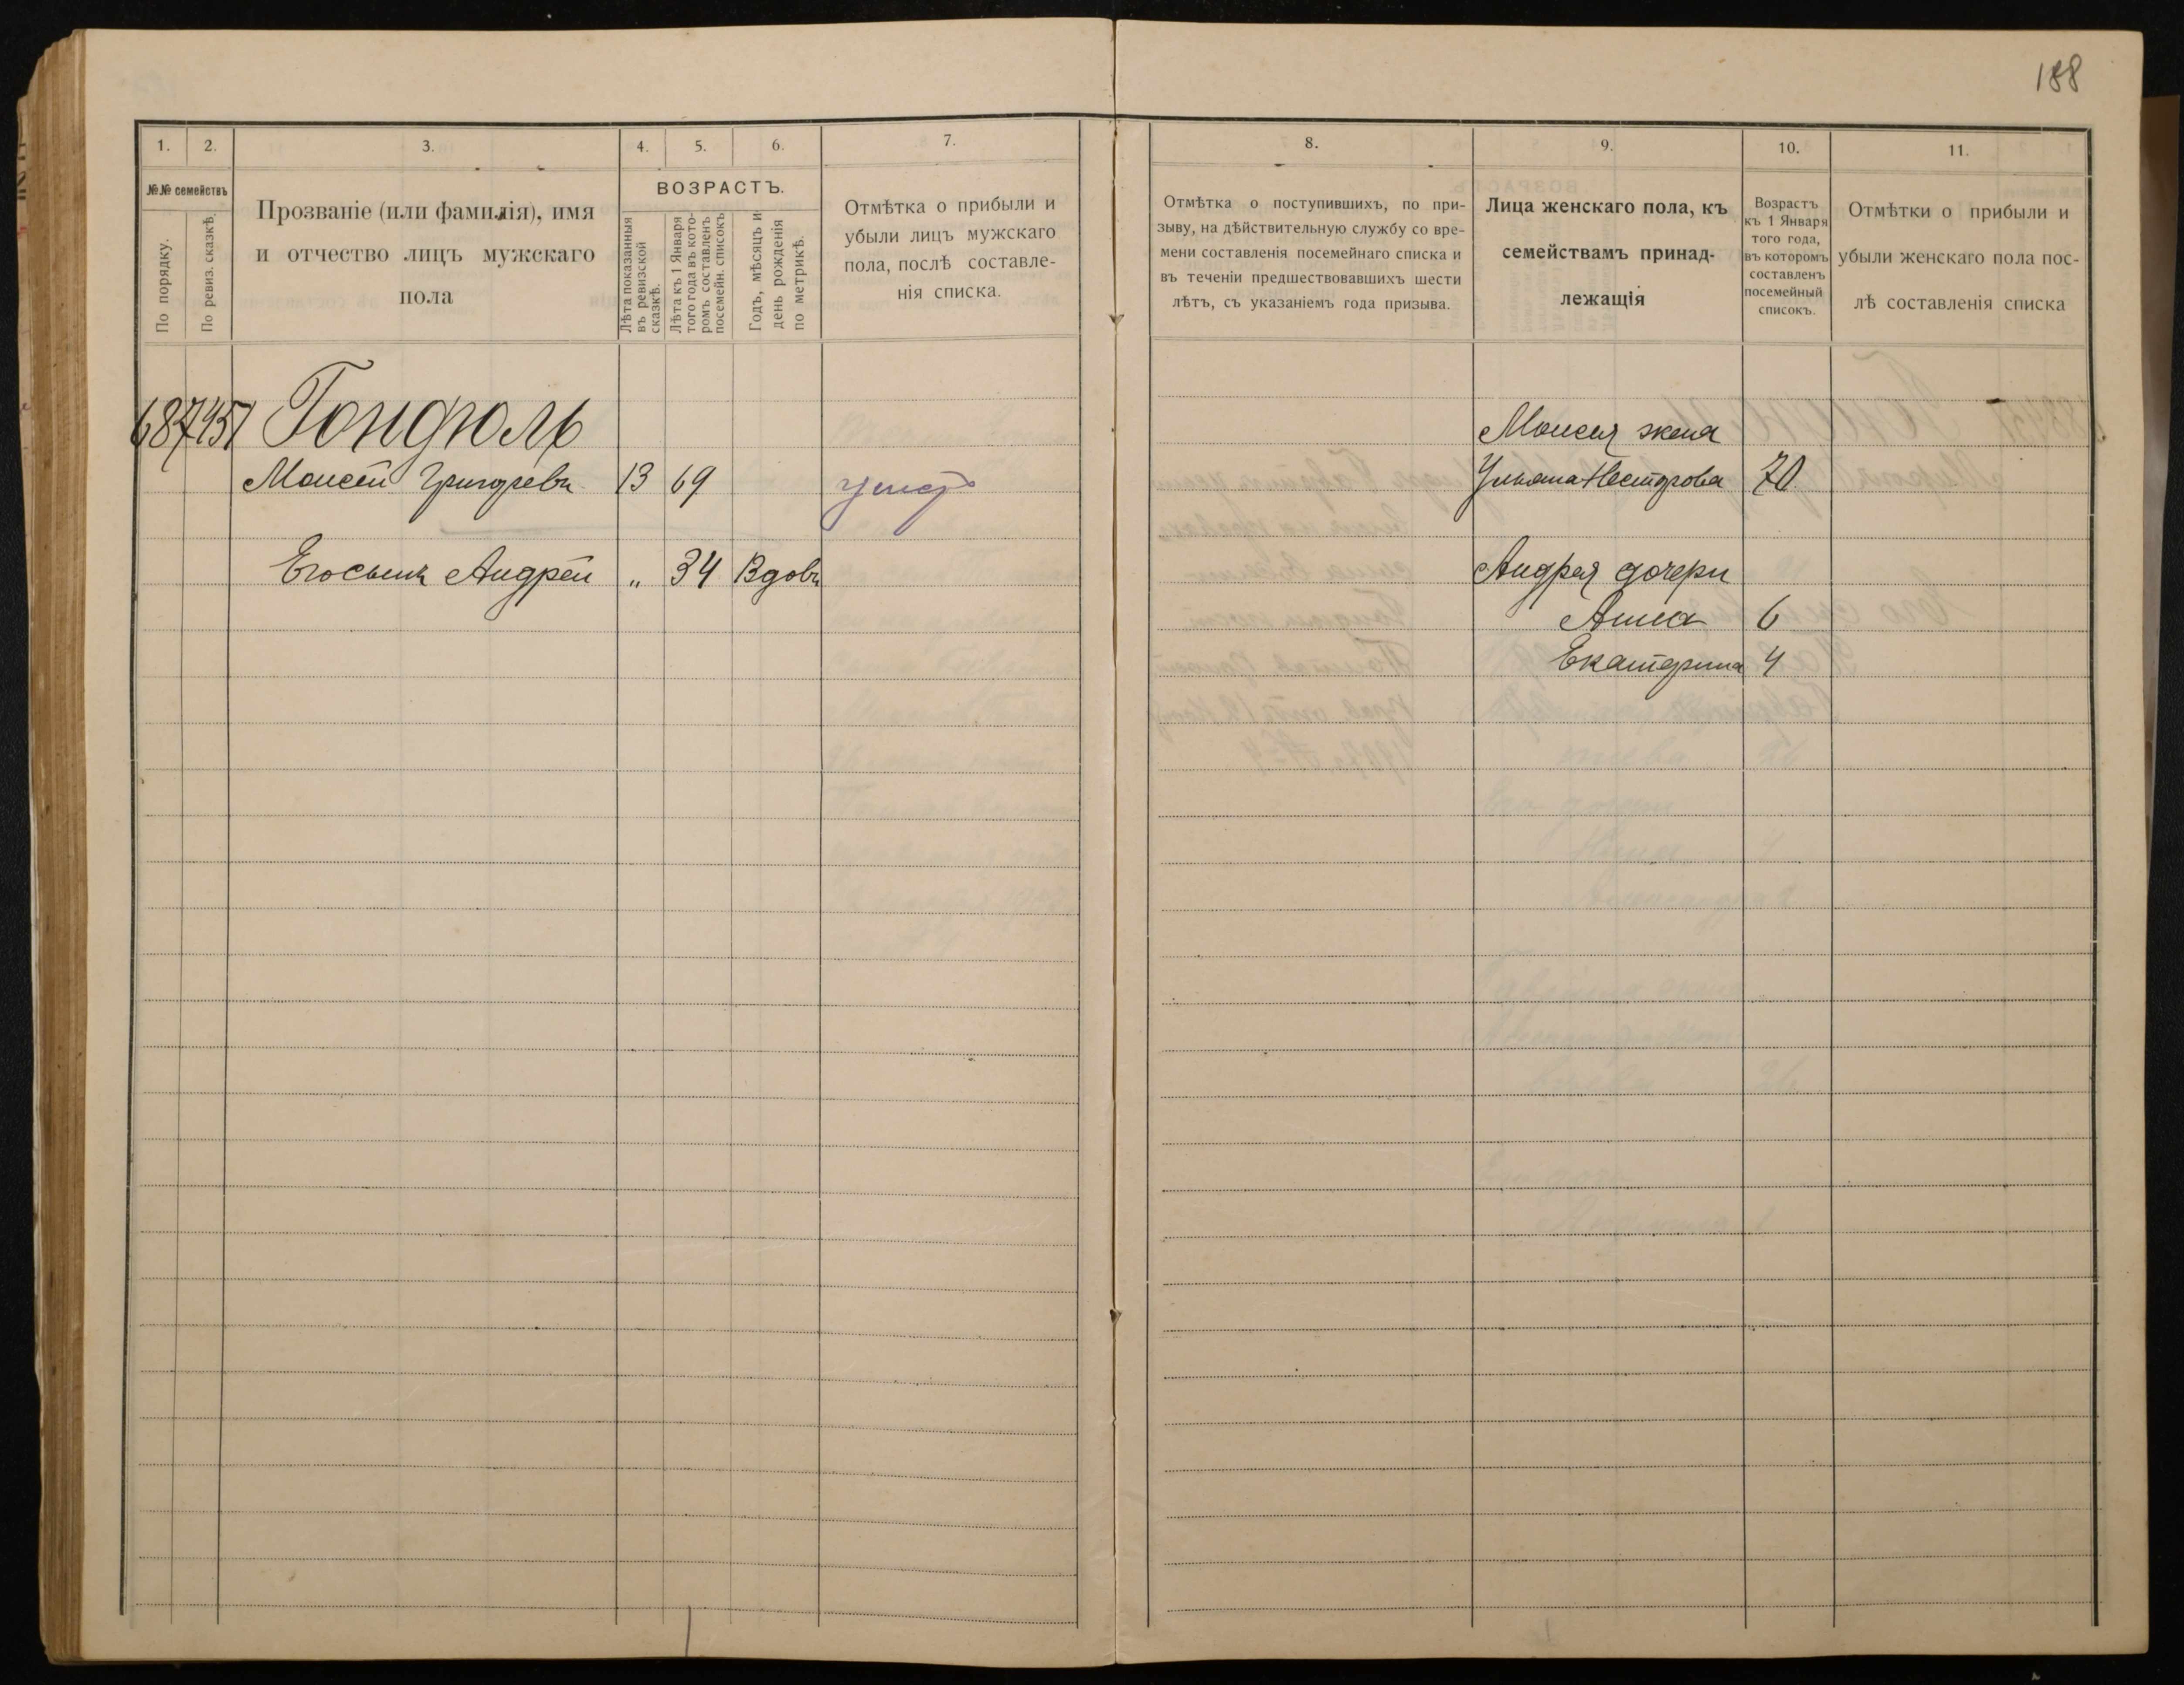 188
1. 2. 3. 4. 5. 6. 7.
№№ семействъ
По порядку.
По ревиз. сказкѣ
Прозваніе (или фамилія), имя
и отчество лицъ мужскаго
пола
ВОЗРАСТЪ.
Лѣта показанныя
въ ревизской
сказкѣ.
Лѣта къ 1 Января
того года въ кото-
ромъ составленъ
посемейн. списокъ
Годъ, мѣсяцъ и
день рожденія
по метрикѣ.
Отмѣтка о прибыли и
убыли лицъ мужскаго
пола, послѣ составле-
нія списка.
687 451 Гондюль
Моисей Григорьевъ 13 69
Его сынъ Андрей „ 34 Вдовъ
8. 9. 10. 11.
Отмѣтка о поступившихъ, по при-
зыву, на дѣйствительную службу со вре-
мени составленія посемейнаго списка и
въ теченіи предшествовавшихъ шести
лѣтъ, съ указаніемъ года призыва.
Лица женскаго пола, къ
семействамъ принад-
лежащія
Возрастъ
къ 1 Января
того года,
въ которомъ
составленъ
посемейный
списокъ.
Отмѣтки о прибыли и
убыли женскаго пола пос-
лѣ составленія списка
Моисея жена
Ульяна Нестерова 70
Андрея дочери
Анна 6
Екатерина 4